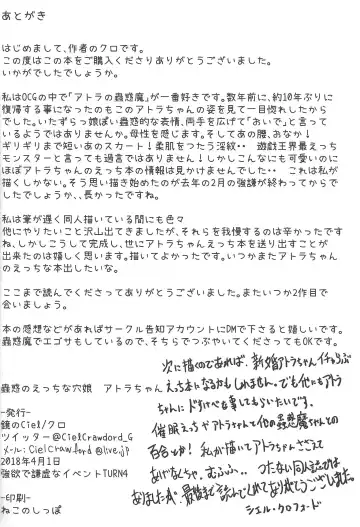 あとがき
はじめまして、作者のクロです。
この度はこの本をご購入くださりありがとうございました。
いかがでしたでしょうか。
私はOCGの中で「アトラの蟲惑魔」が一番好きです。数年前に、約10年ぶりに
復帰する事になったのもこのアトラちゃんの姿を見て一目惚れしたから
でした。いたずらっ娘ぽい蟲惑的な表情、両手を広げて「おいで」と言って
いるようではありませんか。母性を感じます。そしてあの腰、おなか！
ギリギリまで短いあのスカート！柔肌をつたう淫紋・・ 遊戯王界最えっち
モンスターと言っても過言ではありません！しかしこんなにも可愛いのに
ほぼアトラちゃんのえっち本の情報は見かけませんでした・・ これは私が
描くしかない。そう思い描き始めたのが去年の2月の強謙が終わってからで
したでしょうか、、長かったですね。
私は筆が遅く同人描いている間にも色々
他にやりたいこと沢山出てきましたが、それらを我慢するのは辛かったです
ね、しかしこうして完成し、世にアトラちゃんえっち本を送り出すことが
出来たのは嬉しく思います。描いてよかったです。いつかまたアトラちゃん
のえっちな本出したいな。
ここまで読んでくださってありがとうございました。またいつか2作目で
会いましょう。
本の感想などがあればサークル告知アカウントにDMで下さると嬉しいです。
蟲惑魔でエゴサもしているので、そちらでつぶやいてくださってもOKです。
蟲惑のえっちな穴娘 アトラちゃん
-発行-
鏡のCiel/クロ
ツイッター @CielCrawdord_G
メール:CielCraw.ford @live.jp
2018年4月1日
強欲で謙虚なイベントTURN4
-印刷-
ねこのしっぽ
次に描くのであれば、新婚アトラちゃんイチャらぶ
えち本になるかもしれません。でも他にもアトラ
ちゃんにドすけべな事してもらいたいです。
催眠えちやアトラちゃんと他の蟲惑魔ちゃんとの
百合とか！ 私が描いてアトラちゃんささえて
あげなくちゃ。むふふ.. つたない同人誌では
ありましたが、最後まで読んでくれてありがとうございました。
シエル・クロフォード